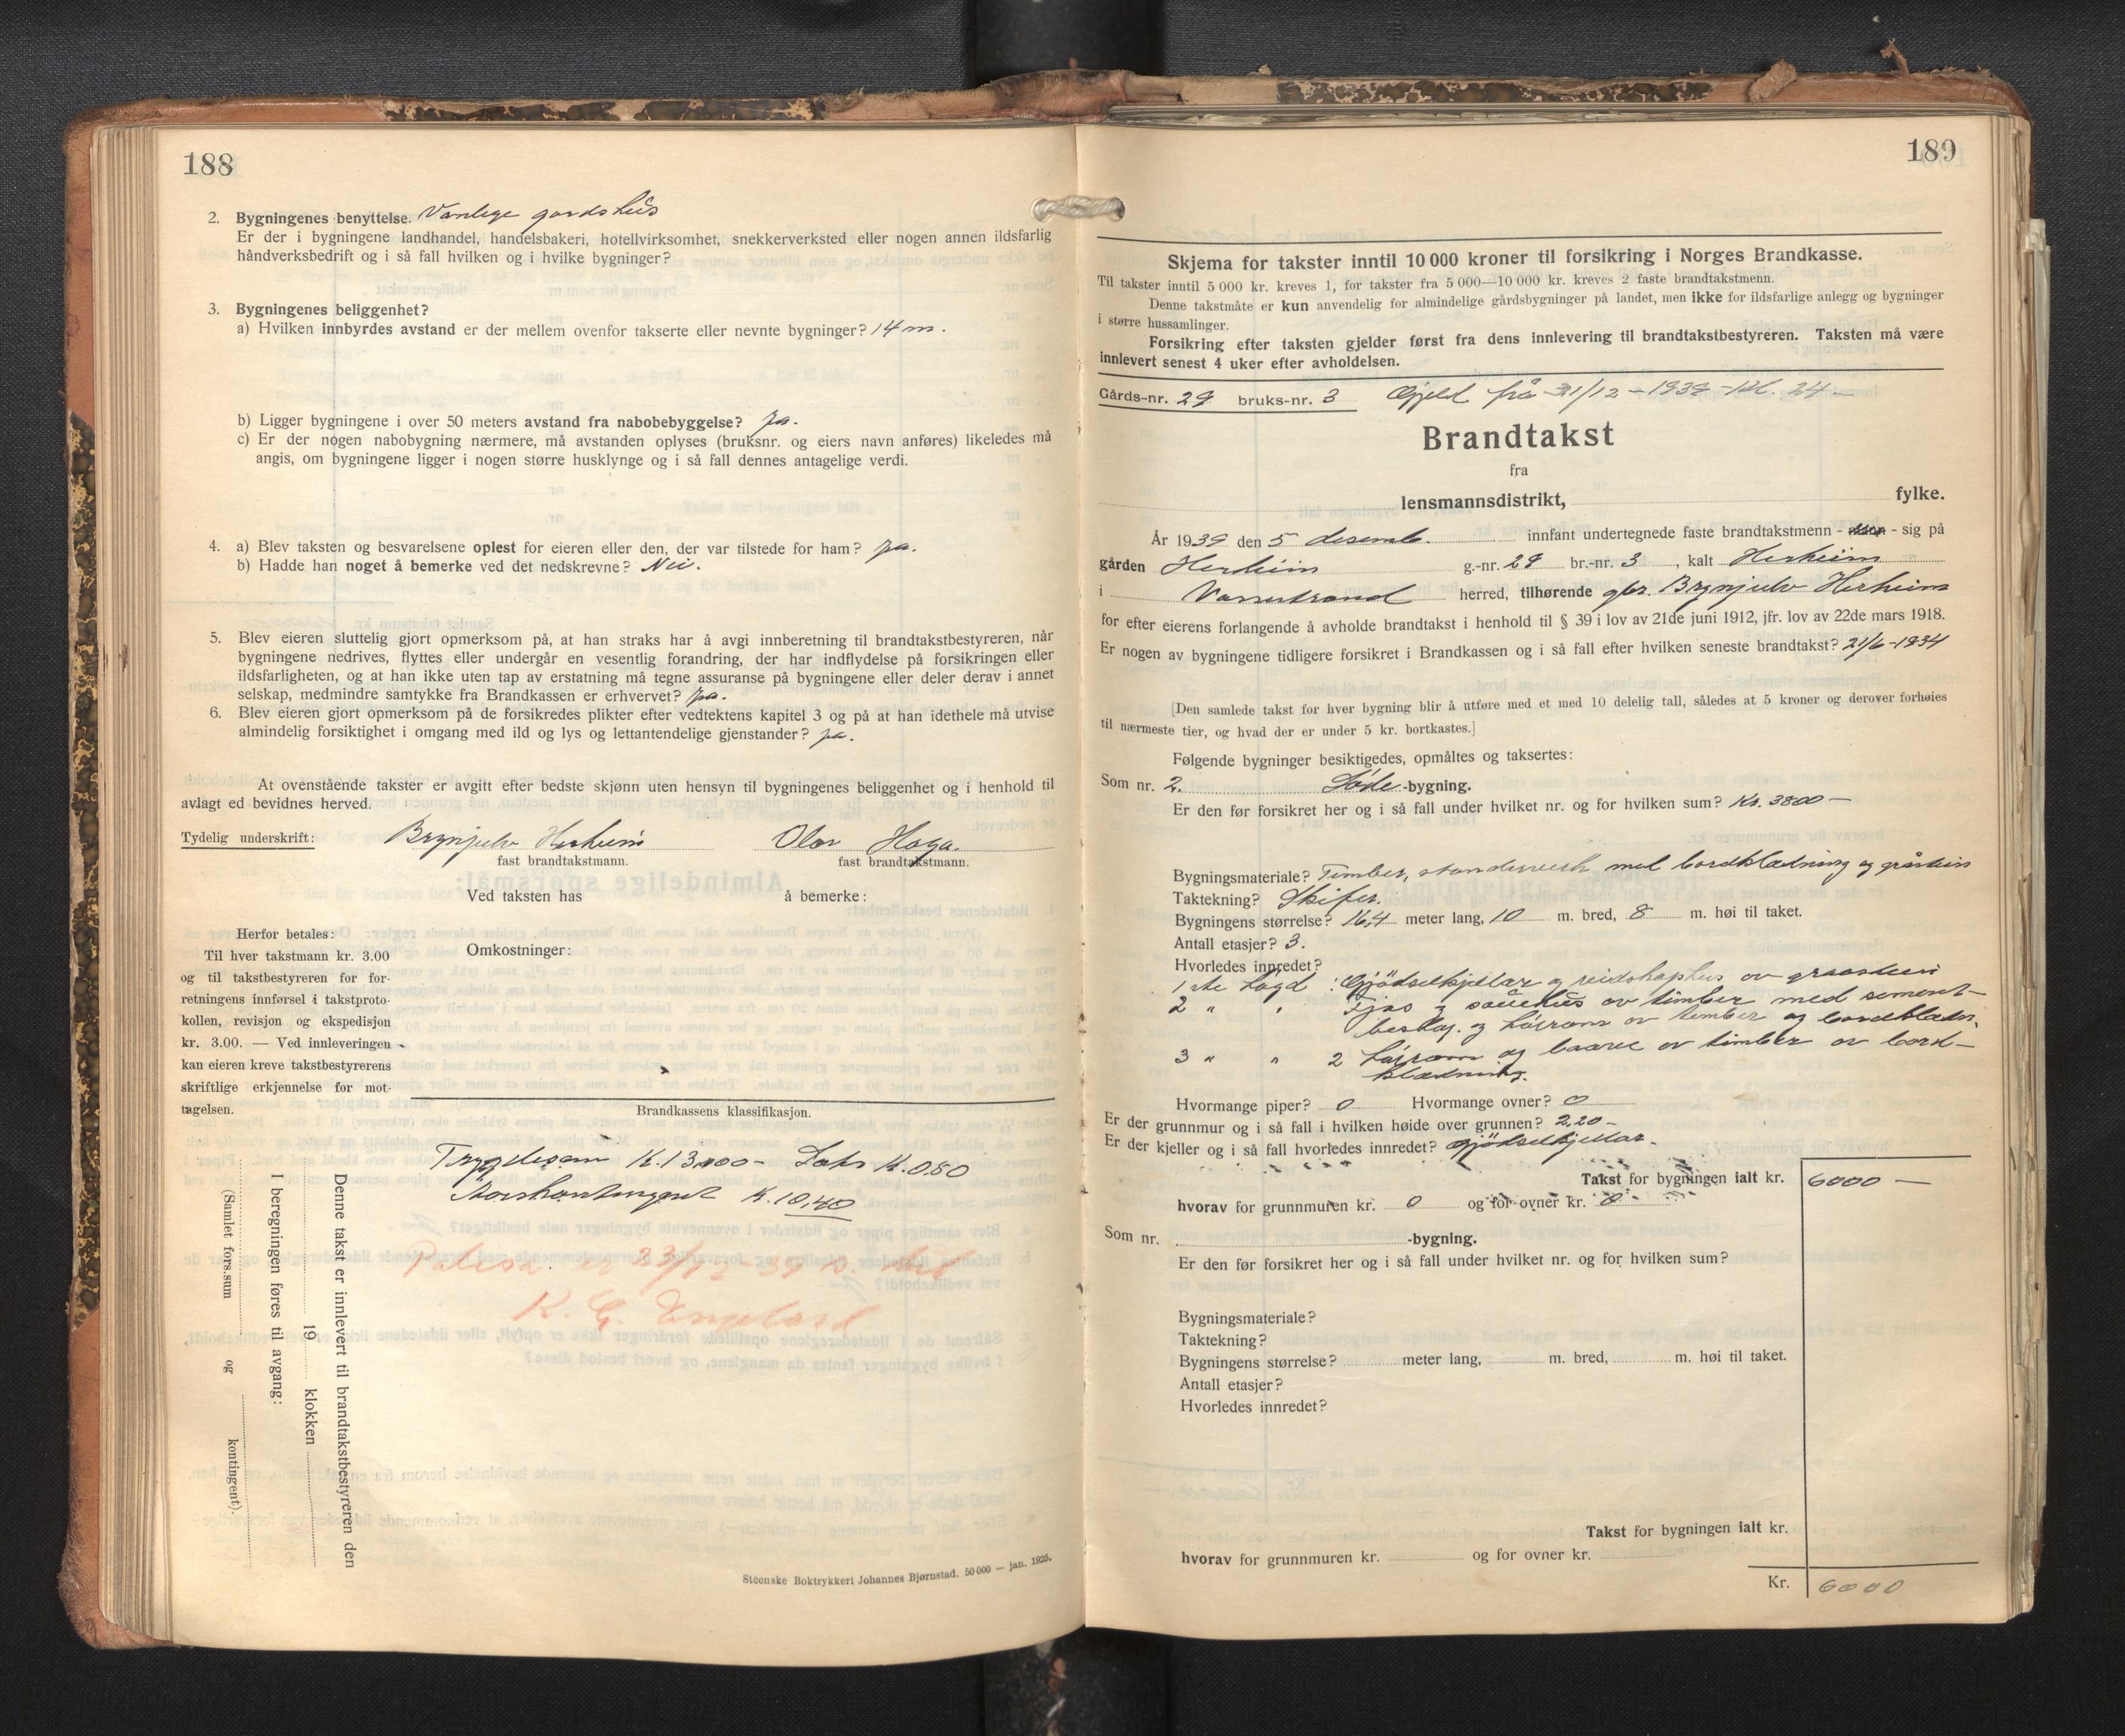 188
2. Bygningenes benyttelse. Vanlege gardshus
Er der i bygningene landhandel, handelsbakeri, hotellvirksomhet, snekkerverksted eller nogen annen ildsfarlig
håndverksbedrift og i så fall hvilken og i hvilke bygninger?
3. Bygningenes beliggenhet?
a) Hvilken innbyrdes avstand er der mellem ovenfor takserte eller nevnte bygninger? 14 m.
b) Ligger bygningene i over 50 meters avstand fra nabobebyggelse? ja.
c) Er der nogen nabobygning nærmere, må avstanden oplyses (bruksnr. og eiers navn anføres) likeledes må
angis, om bygningene ligger i nogen større husklynge og i så fall dennes antagelige verdi.
4. a) Blev taksten og besvarelsene oplest for eieren eller den, der var tilstede for ham? ja.
b) Hadde han noget å bemerke ved det nedskrevne? Nei.
5. Blev eieren sluttelig gjort opmerksom på, at han straks har å avgi innberetning til brandtakstbestyreren, når
bygningene nedrives, flyttes eller undergår en vesentlig forandring, der har indflydelse på forsikringen eller
ildsfarligheten, og at han ikke uten tap av erstatning må tegne assuranse på bygningene eller deler derav i annet
selskap, medmindre samtykke fra Brandkassen er erhvervet? ja.
6. Blev eieren gjort opmerksom på de forsikredes plikter efter vedtektens kapitel 3 og på at han idethele må utvise
almindelig forsiktighet i omgang med ild og lys og lettantendelige gjenstander? ja.
At ovenstående takster er avgitt efter bedste skjønn uten hensyn til bygningenes beliggenhet og i henhold til
avlagt ed bevidnes herved.
Tydelig underskrift: Brynjulv Herheim Olav Haga.
fast brandtakstmann. fast brandtakstmann.
Ved taksten has å bemerke:
Herfor betales:
Til hver takstmann kr. 3.00
og til takstbestyreren for for-
retningens innførsel i takstproto-
kollen, revisjon og ekspedisjon
kr. 3.00. — Ved innleveringen
kan eieren kreve takstbestyrerens
skriftlige erkjennelse for mot-
tagelsen.
Omkostninger:
Brandkassens klassifikasjon.
Trygdesum K. 13000- Sats K. 0.80
Aarskontingent K. 10,40
23/12-39
K. G.
Denne takst er innlevert til brandtakstbestyreren den
19 klokken
I beregningen føres til avgang:
(Samlet fors.sum og kontingent).
Steenske Boktrykkeri Johannes Bjørnstad. 50 000 — jan. 1925.
189
Skjema for takster inntil 10 000 kroner til forsikring i Norges Brandkasse.
Til takster inntil 5 000 kr. kreves 1, for takster fra 5 000—10 000 kr. kreves 2 faste brandtakstmenn.
Denne takstmåte er kun anvendelig for almindelige gårdsbygninger på landet, men ikke for ildsfarlige anlegg og bygninger
i større hussamlinger.
Forsikring efter taksten gjelder først fra dens innlevering til brandtakstbestyreren. Taksten må være
innlevert senest 4 uker efter avholdelsen.
Gårds-nr. 29 bruks-nr. 3 Gjeld frå 21/12-1939 - kl. 24 -
Brandtakst
fra
lensmannsdistrikt, fylke.
År 1939 den 5 desemb. innfant undertegnede faste brandtakstmenn - - sig på
gården Herheim g.-nr. 29 br.-nr. 3, kalt Herheim
i Vossestrand herred, tilhørende gbr. Brynjulv Herheim
for efter eierens forlangende å avholde brandtakst i henhold til § 39 i lov av 21de juni 1912, jfr. lov av 22de mars 1918.
Er nogen av bygningene tidligere forsikret i Brandkassen og i så fall efter hvilken seneste brandtakst? 21/6-1934
[Den samlede takst for hver bygning blir å utføre med et med 10 delelig tall, således at 5 kroner og derover forhøies
til nærmeste tier, og hvad der er under 5 kr. bortkastes.]
Følgende bygninger besiktigedes, opmåltes og taksertes:
Som nr. 2. Løde-bygning.
Er den før forsikret her og i så fall under hvilket nr. og for hvilken sum? Kr. 3800 -
Bygningsmateriale? Timber, standarverk med bordklædning og gråstein
Taktekning? Skifer.
Bygningens størrelse? 16,4 meter lang, 10 m. bred, 8 m. høi til taket.
Antall etasjer? 3.
Hvorledes innredet?
1ste høgd: Gjødselkjellar og reidskaphus av graastein
2 " " Fjøs og sauehus av timber med sement-
beslag. og høirom av timber og bordklædn.
3 " " 2 høirom og baaree av timber av bord-
klædning.
Hvormange piper? 0 Hvormange ovner? 0
Er der grunnmur og i så fall i hvilken høide over grunnen? 2,20 -
Er der kjeller og i så fall hvorledes innredet? Gjødselkjellar.
Takst for bygningen ialt kr. 6000 -
hvorav for grunnmuren kr. 0 og for ovner kr. 0
Som nr. -bygning.
Er den før forsikret her og i så fall under hvilket nr. og for hvilken sum?
Bygningsmateriale?
Taktekning?
Bygningens størrelse? meter lang, m. bred, m. høi til taket.
Antall etasjer?
Hvorledes innredet?
Takst for bygningen ialt kr.
hvorav for grunnmuren kr. og for ovner kr.
Kr. 6000